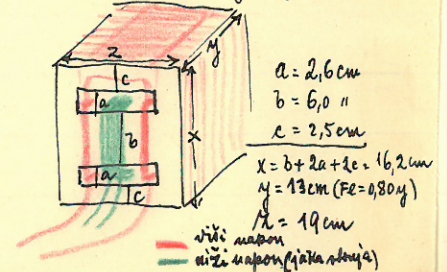 z
y
c
a
a = 2,6 cm
b = 6,0 "
x
b
c = 2,5 cm
a
x = b + 2a + 2c = 16,2 cm
c
y = 13 cm (Fe = 0,80 y)
z = 19 cm
viši napon
niži napon (jača struja)